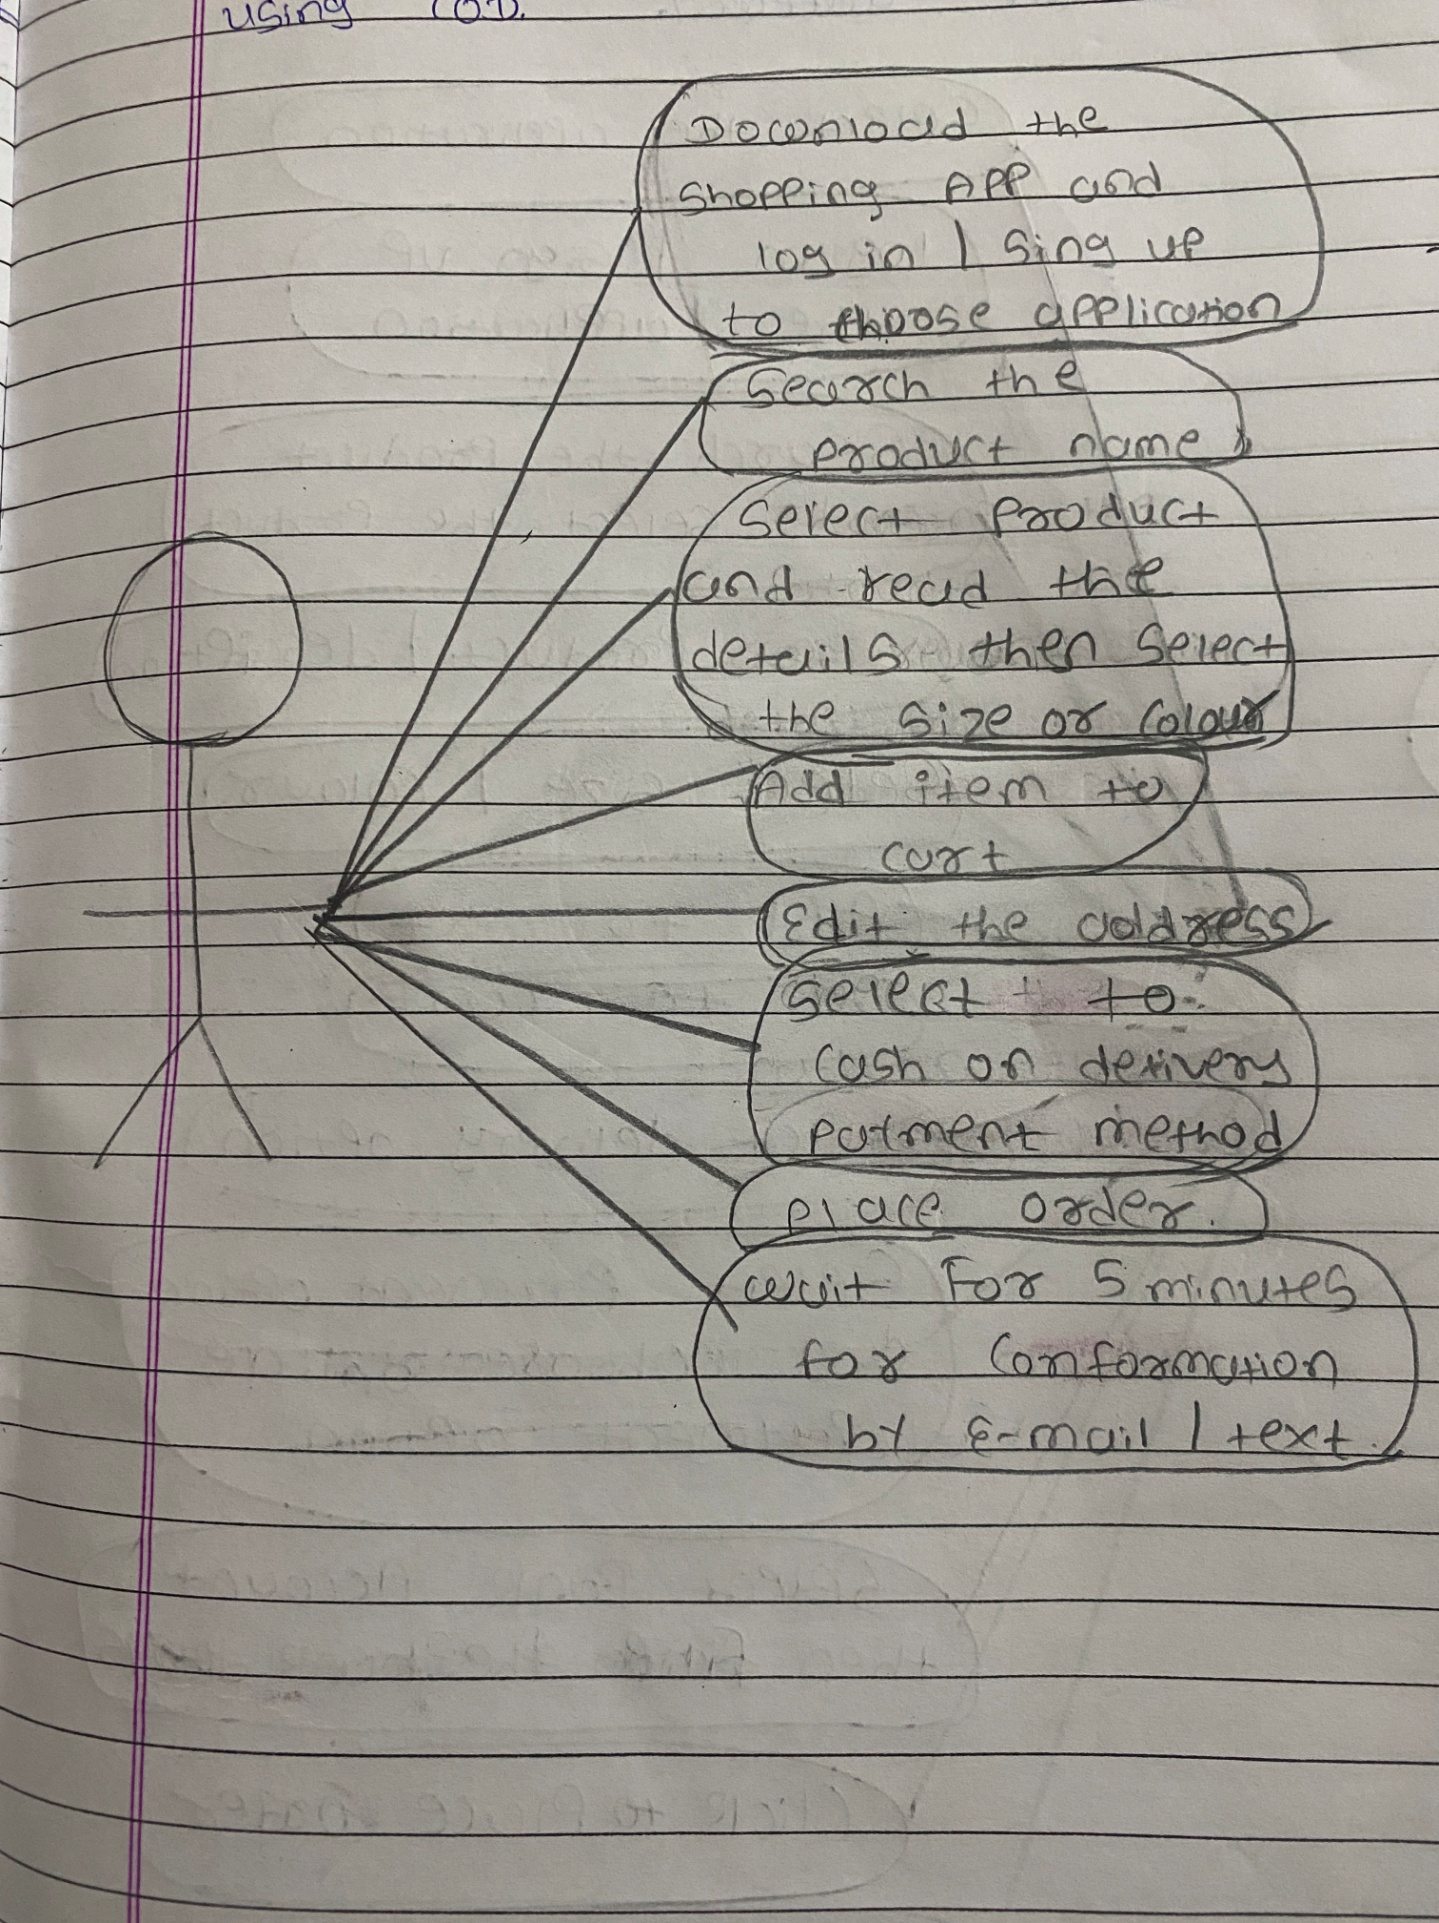 using C.O.D.
Download the
Shopping APP and
log in / Sing up
to choose application
Search the
product name
Select Product
and read the
details then Select
the Size or Colour
Add item to
cart
Edit the address
Select to
Cash on delivery
patment method
Place order.
Wait For 5 minutes
for Conformation
by E-mail / text.